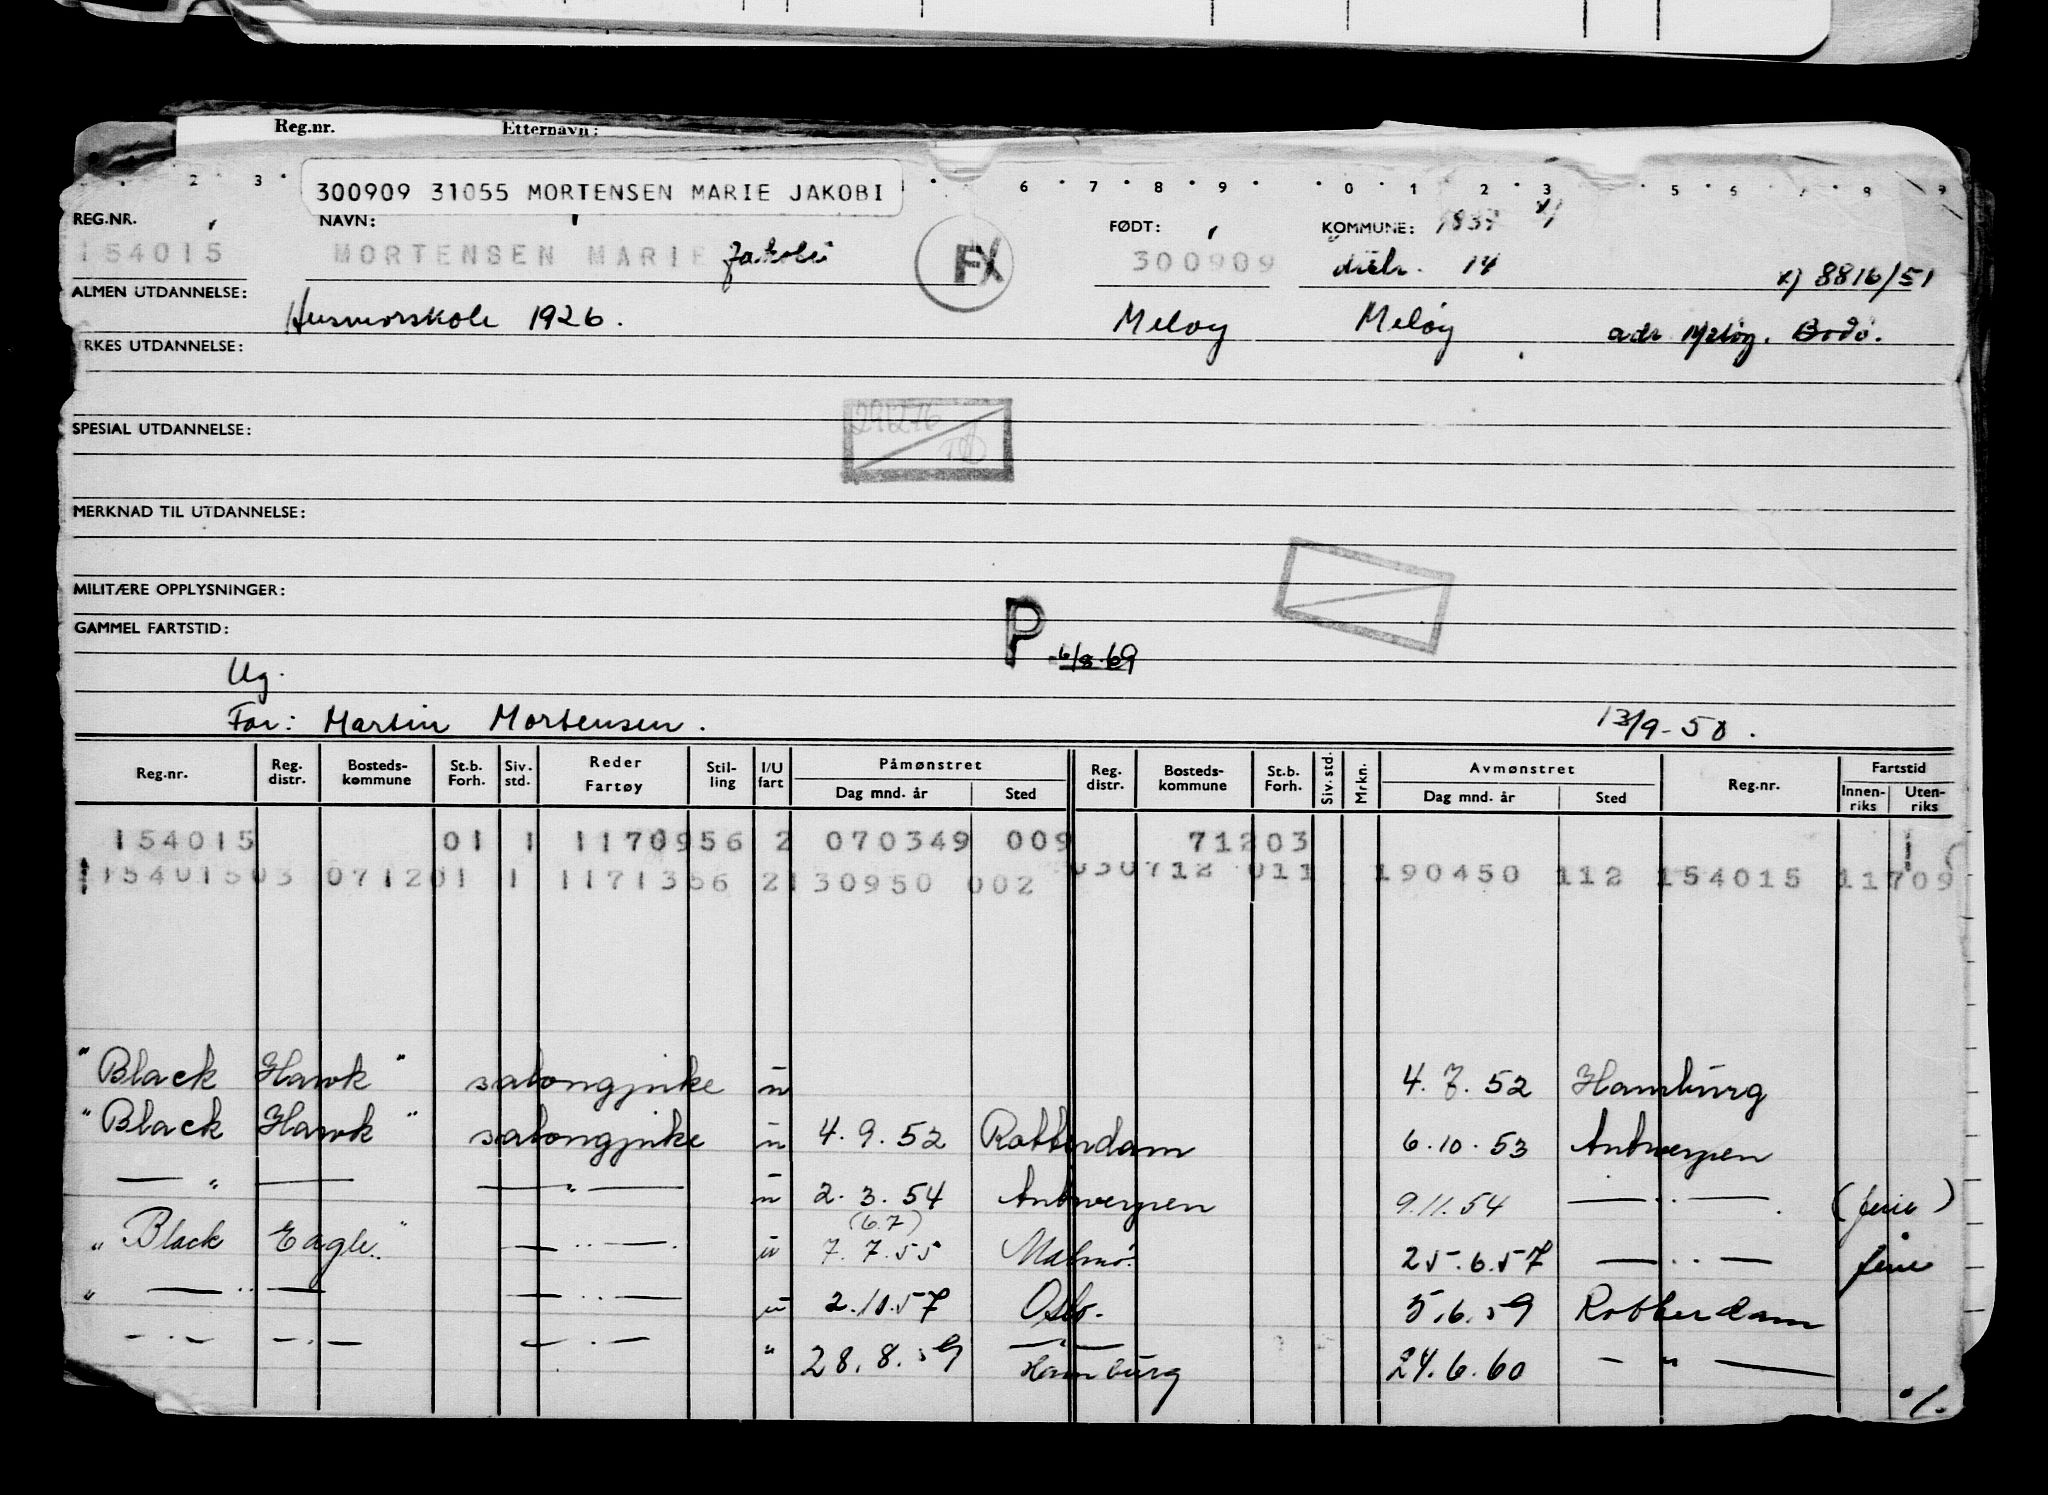 Reg.nr. Etternavn:
2 3 6 7 8 9 0 1 2 3 5 6 8 9
300909 31055 MORTENSEN MARIE JAKOBI
REG.NR. NAVN: FØDT: KOMMUNE: 1837 x)
154015 MORTENSEN MARIE Jakobi FX 300909 distr. 14 x) 8816/51
ALMEN UTDANNELSE: Husmorskole 1926. Meløy Meløy adr Meløy. Bodø.
YRKES UTDANNELSE:
291276
SPESIAL UTDANNELSE:
MERKNAD TIL UTDANNELSE:
MILITÆRE OPPLYSNINGER:
GAMMEL FARTSTID:
P 6/8.69
Ug.
Far: Martin Mortensen. 13/9-50.
Reg.nr. Reg. distr. Bosteds-kommune St.b. Forh. Siv. std. Reder Fartøy Stil-ling I/U fart Påmønstret Dag mnd. år Sted Reg. distr. Bosteds-kommune St.b. Forh. Siv. std. Mrkn. Avmønstret Dag mnd. år Sted Reg.nr. Fartstid Innen-riks Uten-riks
154015 01 1 1170956 2 070349 009 71203 1
115401503 071201 1 1171356 2130950 002 030712 011 190450 112 154015 11709
"Black Hawk" salongpike u 4.7.52 Hamburg
"Black Hawk" salongpike u 4.9.52 Rotterdam 6.10.53 Antwerpen
— " — — " — u 2.3.54 Antwerpen 9.11.54 — " — (ferie)
(6.7)
"Black Eagle" — " — u 7.7.55 Malmø 25.6.57 — " — ferie
" — " — — " — u 2.10.57 Oslo. 5.6.59 Rotterdam
— " — — " — — " — " 28.8.59 — " — Hamburg 24.6.60 — " —
./.